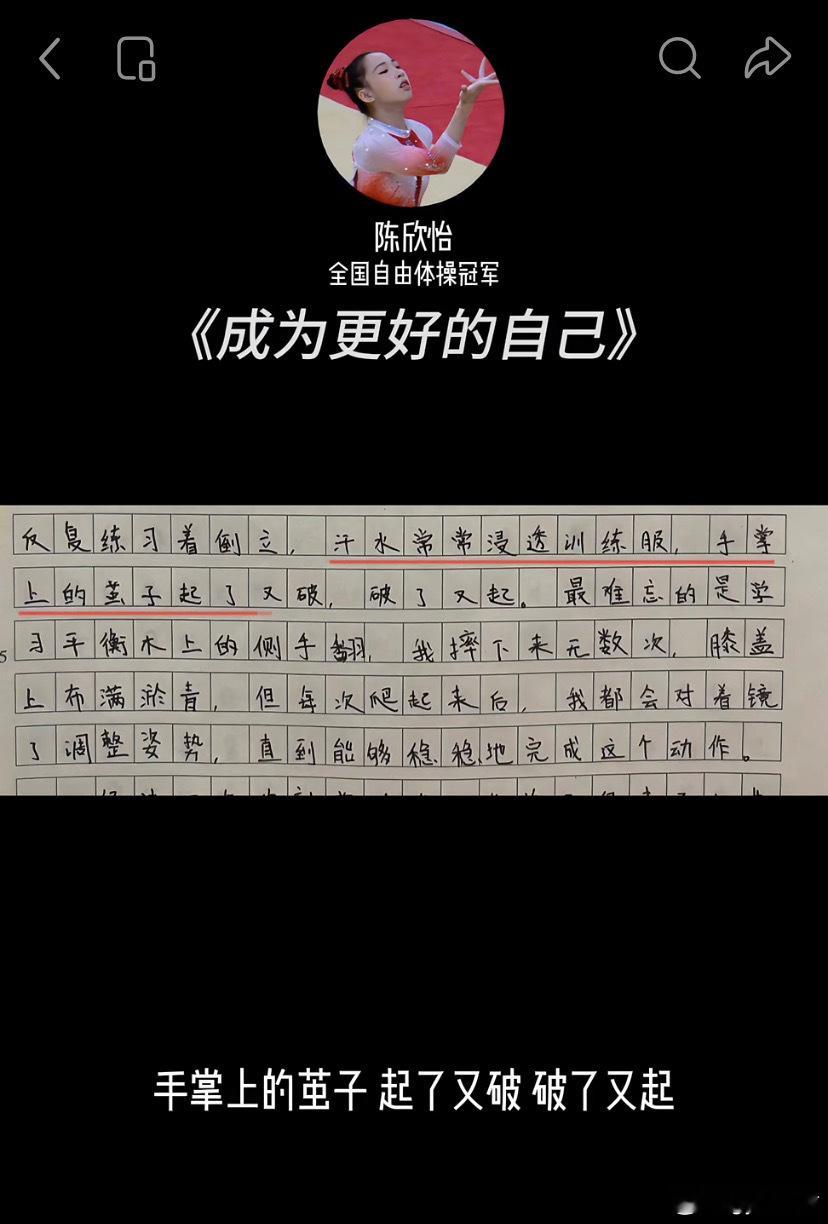 陈欣怡
全国自由体操冠军
《成为更好的自己》
反复练习着倒立，汗水常常浸透训练服，手掌
上的茧子起了又破，破了又起。最难忘的是学
习平衡木上的侧手翻，我摔下来无数次，膝盖
上布满淤青，但每次爬起来后，我都会对着镜
了调整姿势，直到能够稳稳地完成这个动作。
手掌上的茧子 起了又破 破了又起